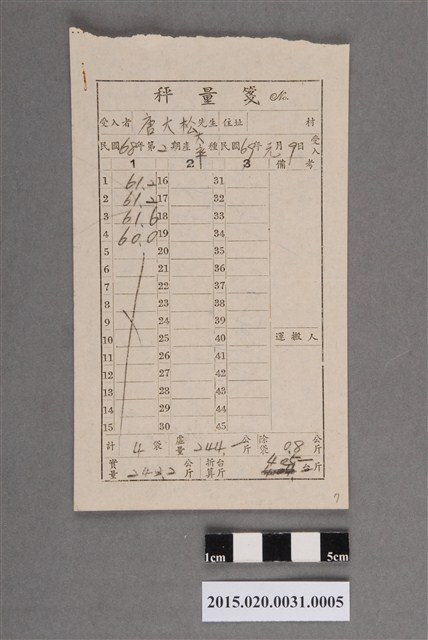 秤量箋 No.
受入者 唐大松 先生 住址 村
民國68年第2期產 種民國69年元月9日受入
1 2 3 備考
1 61.2 16 31
2 61.2 17 32
3 61.6 18 33
4 60.0 19 34
5 20 35
6 21 36
7 22 37
8 23 38
9 24 39
10 25 40 運搬人
11 26 41
12 27 42
13 28 43
14 29 44
15 30 45
計 4 袋 虛量 244 公斤 除袋 0.8 公斤
實量 243.2 公斤 折算台斤 405 台斤
7
1cm 5cm
2015.020.0031.0005